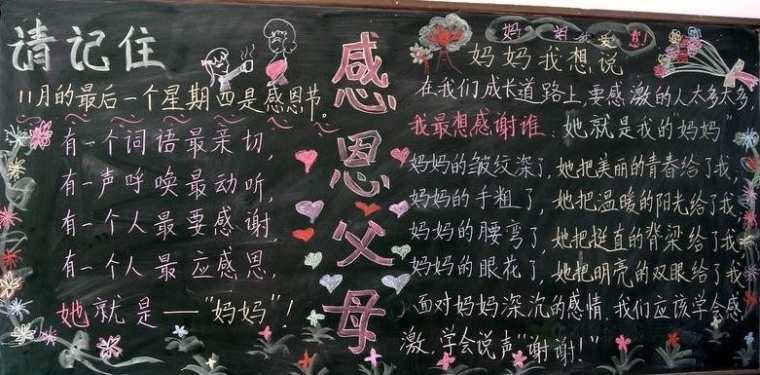 请记住
11月的最后一个星期四是感恩节。
有一个词语最亲切,
有一声呼唤最动听,
有一个人最要感谢,
有一个人最应感恩,
她就是——"妈妈"!
感恩父母
妈 我爱您!
妈妈我想说
在我们成长道路上,要感激的人太多太多,
我最想感谢谁:她就是我的"妈妈"
妈妈的皱纹深了,她把美丽的青春给了我,
妈妈的手粗了,她把温暖的阳光给了我,
妈妈的腰弯了,她把挺直的背梁给了我
妈妈的眼花了,她把明亮的双眼给了我
面对妈妈深沉的感情,我们应该学会感
激,学会说声"谢谢!"